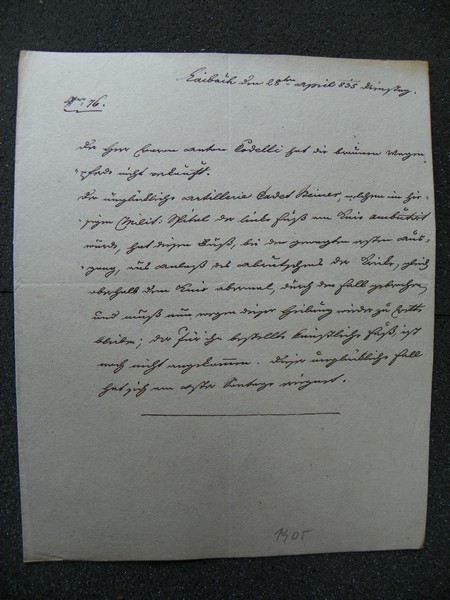 Laibach den 28ten April 835 Dienstag.
Nro 76.
Der Herr Baron Anton Codelli hat die braunen Wagen-
pferde nicht verkauft.
Der unglückliche Artillerie Cadet Heiner, welchem im hie-
sigen Milit: Spital der linke Fuß am Knie amputirt
wurde, hat diesen Fuß, bei dem gewagten ersten Aus-
gang, aus Anlaß des Abrutschens der Krücke, gleich
oberhalb dem Knie abermal, durch den Fall gebrochen,
und muß nun wegen dieser Heilung wieder zu Bette
bleiben; der für ihn bestellte künstliche Fuß ist
noch nicht angekommen. Dieser unglückliche Fall
hat sich am Oster Sontage ereignet.
1505